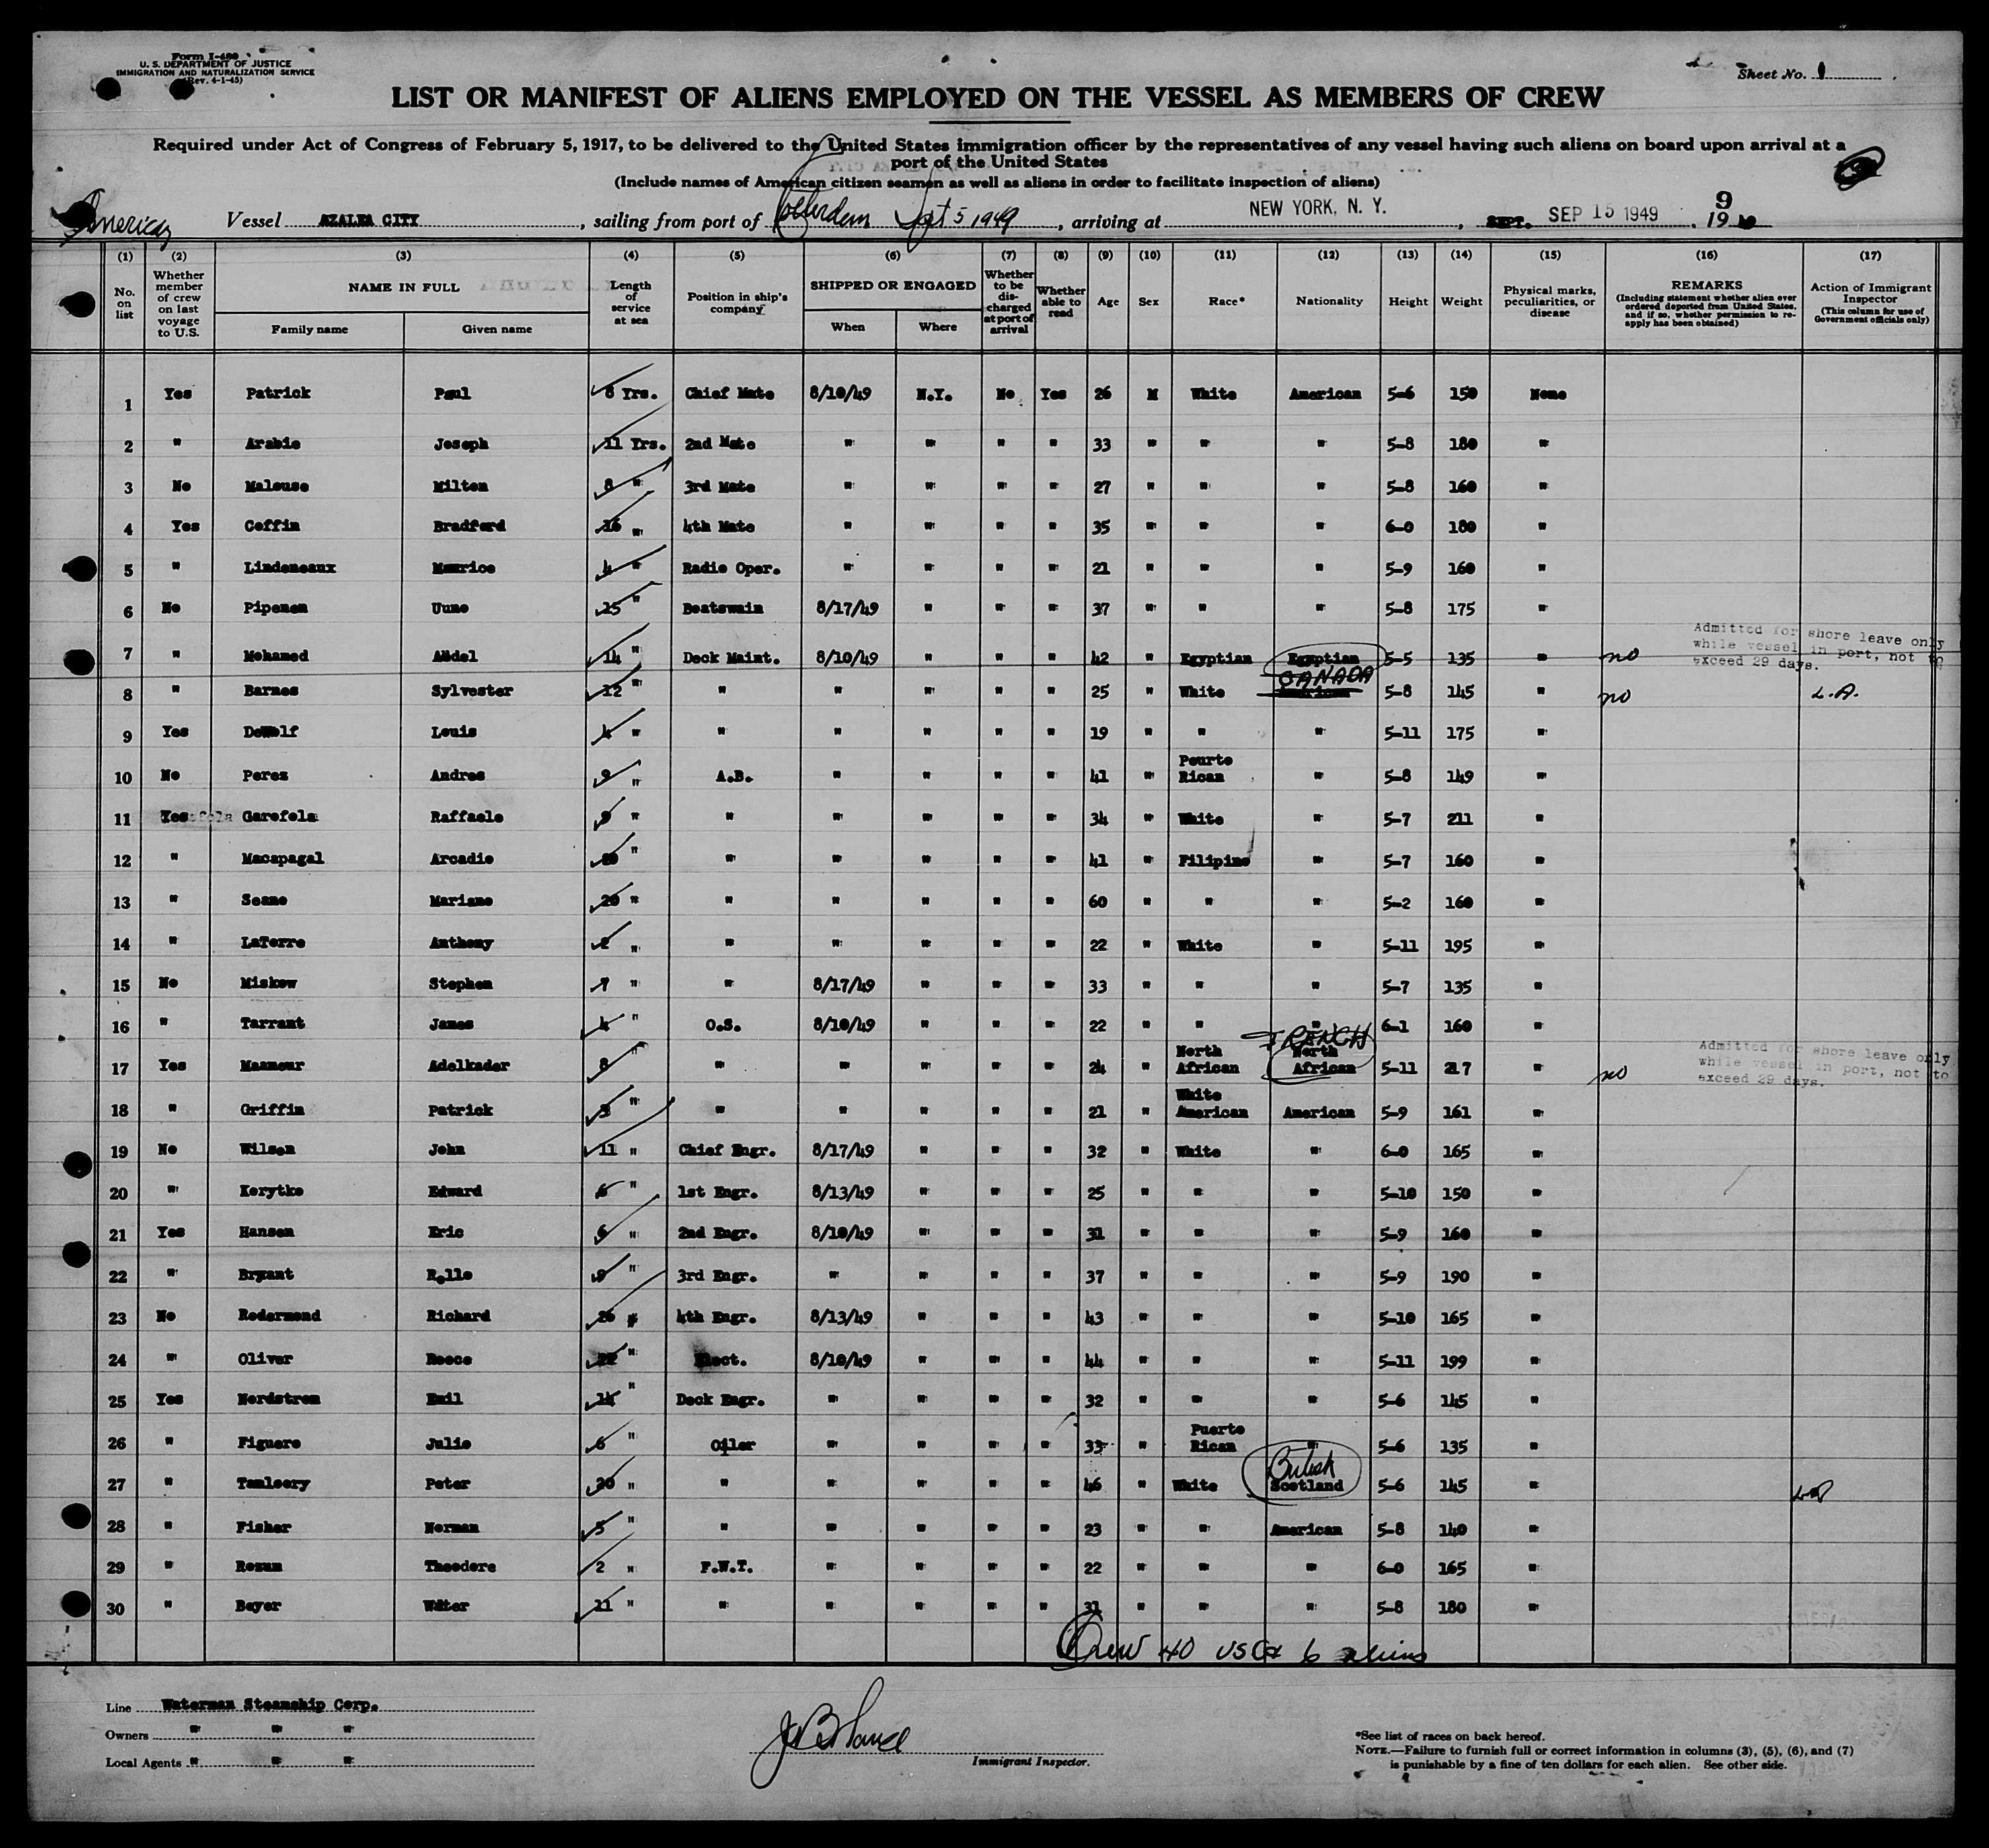 Form I-480
U. S. DEPARTMENT OF JUSTICE
IMMIGRATION AND NATURALIZATION SERVICE
(Rev. 4-1-45)
Sheet No. 1
LIST OR MANIFEST OF ALIENS EMPLOYED ON THE VESSEL AS MEMBERS OF CREW
Required under Act of Congress of February 5, 1917, to be delivered to the United States immigration officer by the representatives of any vessel having such aliens on board upon arrival at a
port of the United States
(Include names of American citizen seamen as well as aliens in order to facilitate inspection of aliens)
American Vessel AZALEA CITY, sailing from port of Sept 5 1949, arriving at NEW YORK, N. Y., SEPT. SEP 15 1949, 19 9
(1) (2) (3) (4) (5) (6) (7) (8) (9) (10) (11) (12) (13) (14) (15) (16) (17)
No. on list
Whether member of crew on last voyage to U.S.
NAME IN FULL
Family name
Given name
Length of service at sea
Position in ship's company
SHIPPED OR ENGAGED
When
Where
Whether to be discharged at port of arrival
Whether able to read
Age
Sex
Race*
Nationality
Height
Weight
Physical marks, peculiarities, or disease
REMARKS
(Including statement whether alien ever ordered deported from United States, and if so, whether permission to reapply has been obtained)
Action of Immigrant Inspector
(This column for use of Government officials only)
1 Yes Patrick Paul 8 Yrs. Chief Mate 8/10/49 N.Y. No Yes 26 M White American 5-6 150 None
2 " Arabie Joseph 11 Yrs. 2nd Mate " " " " 33 " " " 5-8 180 "
3 No Malouse Milton 8 " 3rd Mate " " " " 27 " " " 5-8 160 "
4 Yes Coffin Bradford 16 " 4th Mate " " " " 35 " " " 6-0 180 "
5 " Lindeneaux Maurice 4 " Radio Oper. " " " " 21 " " " 5-9 160 "
6 No Piponen Uuno 15 " Boatswain 8/17/49 " " " 37 " " " 5-8 175 "
7 " Mohamed Abdel 14 " Deck Maint. 8/10/49 " " " 42 " Egyptian Egyptian 5-5 135 " no Admitted for shore leave only while vessel in port, not to exceed 29 days.
8 " Barnes Sylvester 12 " " " " " " 25 " White CANADA American 5-8 145 " no L.A.
9 Yes DeWolf Louis 4 " " " " " " 19 " " " 5-11 175 "
10 No Perez Andres 9 " A.B. " " " " 41 " Peurto Rican " 5-8 149 "
11 Yes Garofola Raffaele 9 " " " " " " 34 " White " 5-7 211 "
12 " Macapagal Arcadio 20 " " " " " " 41 " Filipino " 5-7 160 "
13 " Seano Mariano 20 " " " " " " 60 " " " 5-2 160 "
14 " LaTorre Anthony 2 " " " " " " 22 " White " 5-11 195 "
15 No Miskow Stephen 7 " " 8/17/49 " " " 33 " " " 5-7 135 "
16 " Tarrant James 4 " O.S. 8/10/49 " " " 22 " " " 6-1 160 "
17 Yes Maamour Adelkader 8 " " " " " " 24 " North African FRENCH North African 5-11 217 " no Admitted for shore leave only while vessel in port, not to exceed 29 days.
18 " Griffin Patrick 3 " " " " " " 21 " White American American 5-9 161 "
19 No Wilson John 11 " Chief Engr. 8/17/49 " " " 32 " White " 6-0 165 "
20 " Korytko Edward 6 " 1st Engr. 8/13/49 " " " 25 " " " 5-10 150 "
21 Yes Hansen Eric 6 " 2nd Engr. 8/10/49 " " " 31 " " " 5-9 160 "
22 " Bryant Rollo 9 " 3rd Engr. " " " " 37 " " " 5-9 190 "
23 No Redermond Richard 26 " 4th Engr. 8/13/49 " " " 43 " " " 5-10 165 "
24 " Oliver Reece 22 " Elect. 8/10/49 " " " 44 " " " 5-11 199 "
25 Yes Nordstrom Emil 14 " Deck Engr. " " " " 32 " " " 5-6 145 "
26 " Figuero Julio 6 " Oiler " " " " 33 " Puerto Rican " 5-6 135 "
27 " Tamloery Peter 20 " " " " " " 46 " White British Scotland 5-6 145 "
28 " Fisher Norman 5 " " " " " " 23 " " American 5-8 140 "
29 " Rozum Theodore 2 " F.W.T. " " " " 22 " " " 6-0 165 "
30 " Beyer Walter 11 " " " " " " 31 " " " 5-8 180 "
Crew 40 USCs 6 aliens
Line Waterman Steamship Corp.
Owners " " "
Local Agents " " "
Immigrant Inspector.
*See list of races on back hereof.
NOTE.—Failure to furnish full or correct information in columns (3), (5), (6), and (7)
is punishable by a fine of ten dollars for each alien. See other side.